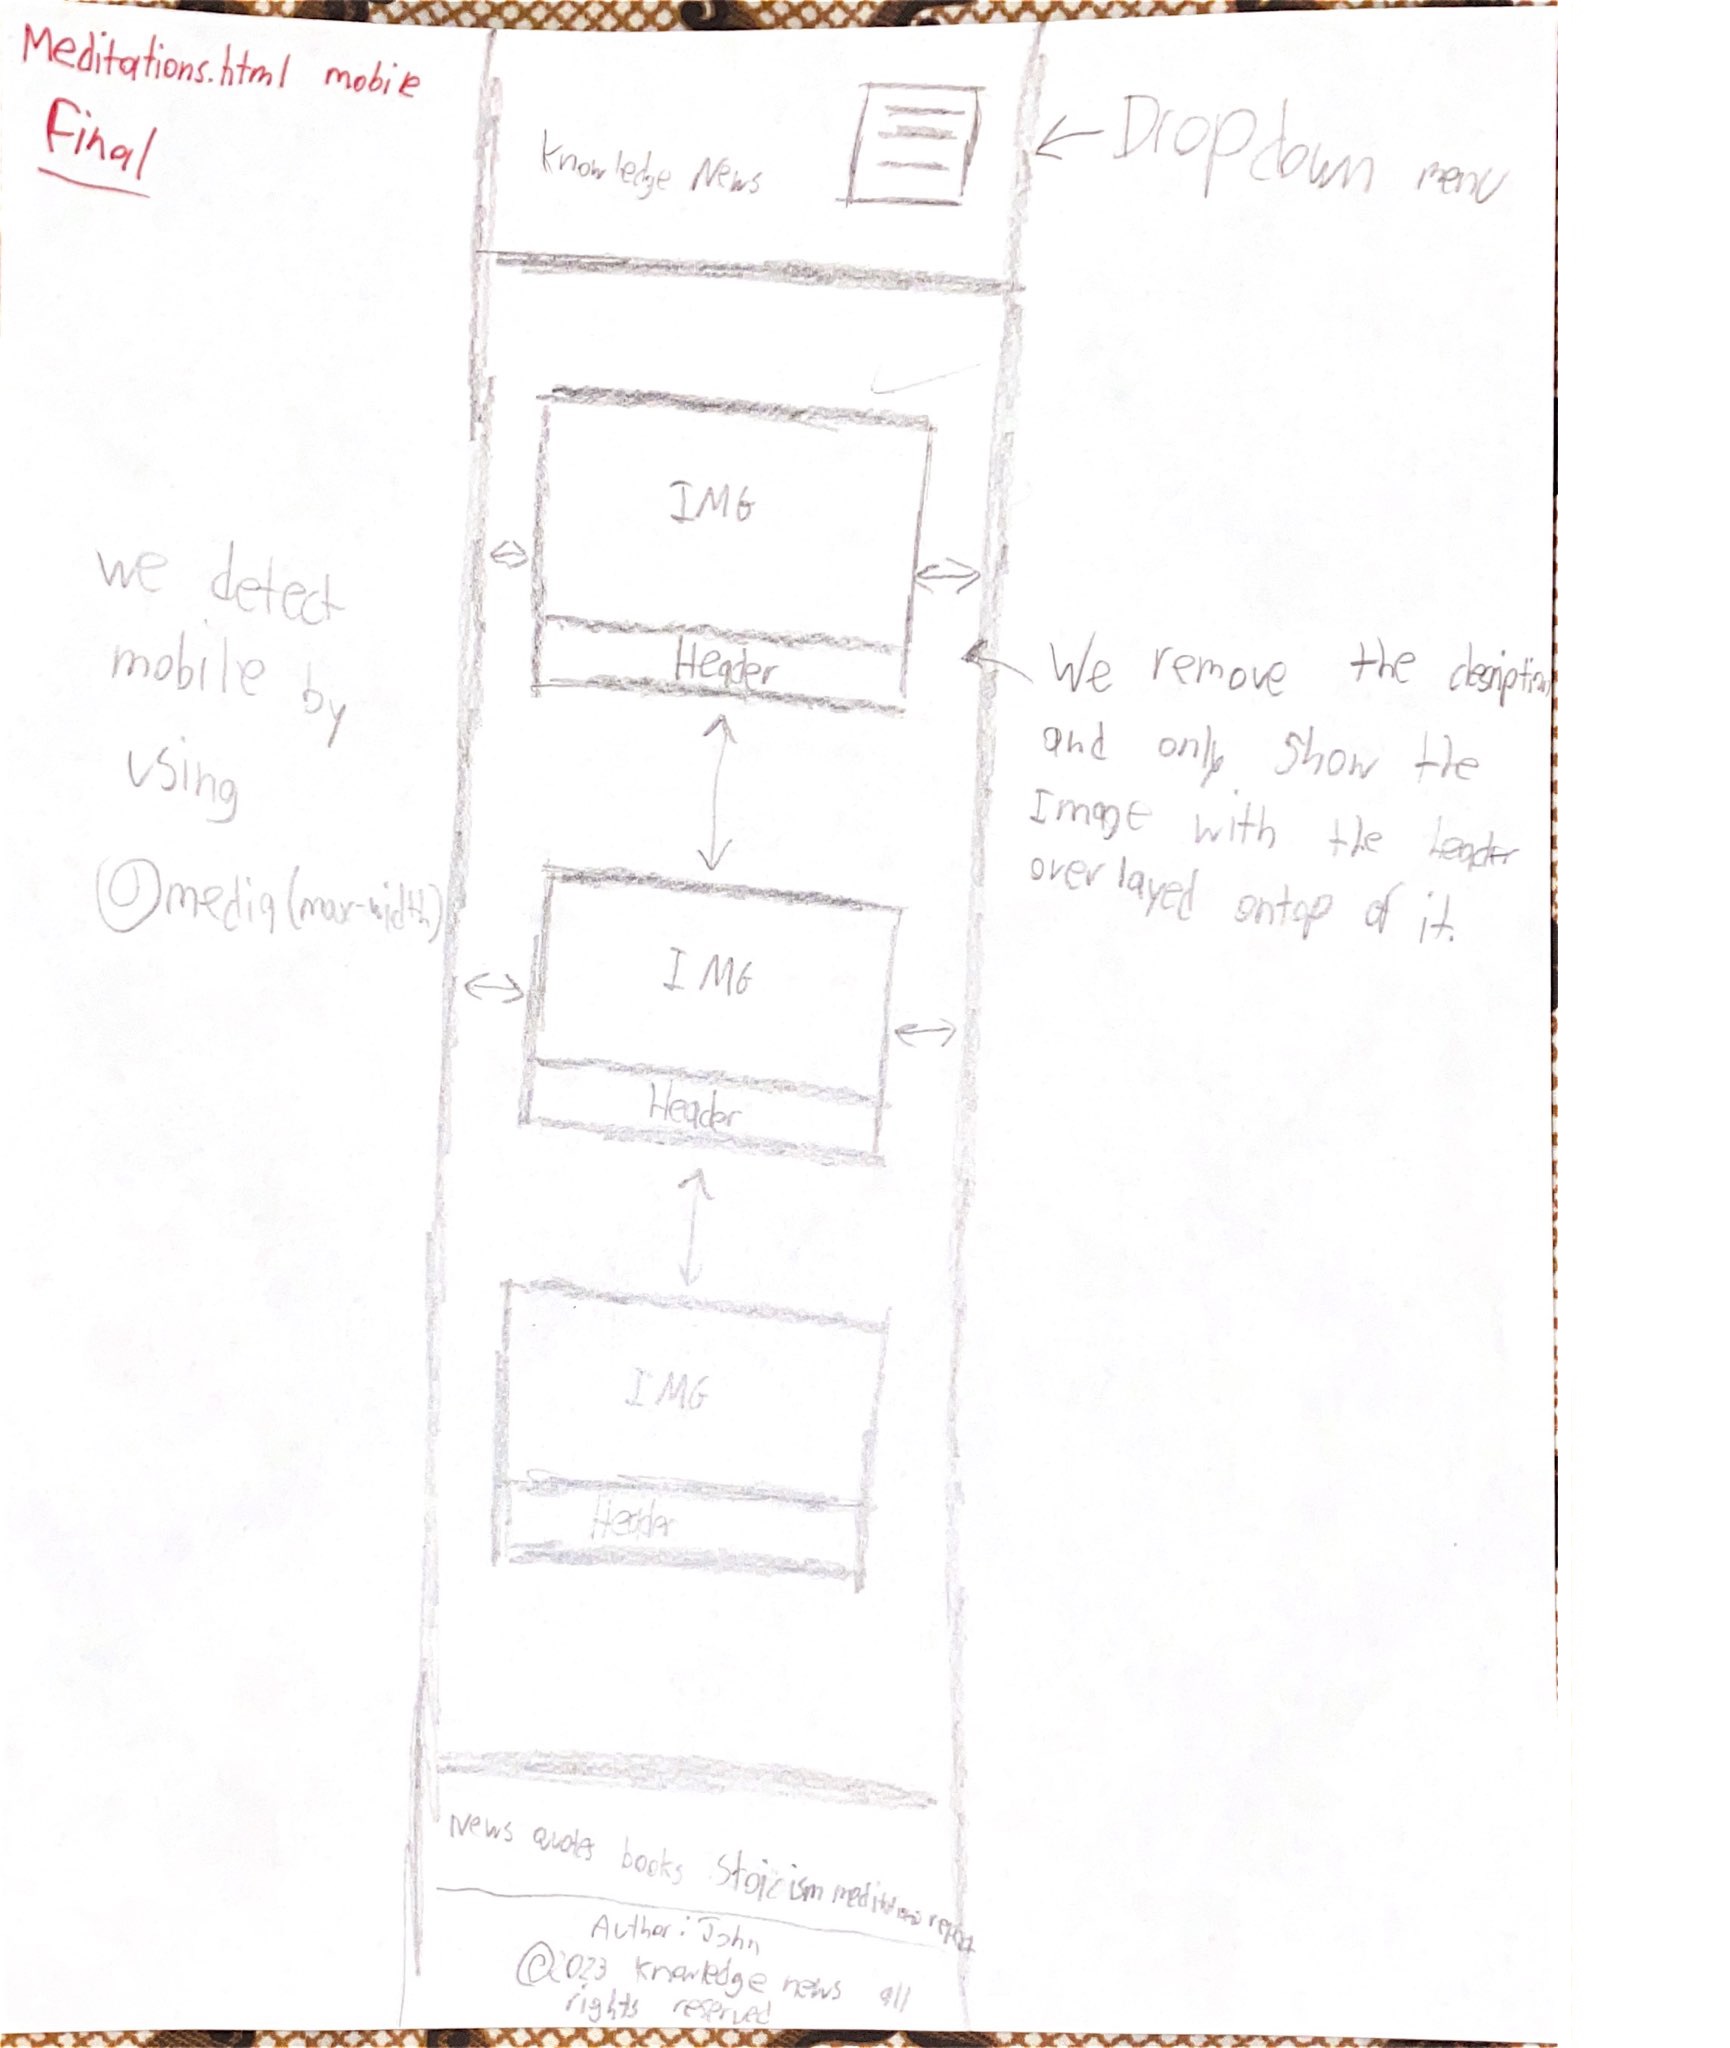 Meditations.html mobile
Final
Knowledge News
Dropdown menu
IMG
Header
we detect
mobile by
using
@media(max-width)
We remove the desription
and only show the
Image with the header
overlayed ontop of it.
IMG
Header
IMG
Header
News quotes books Stoicism meditations report
Author: John
©2023 Knowledge news all
rights reserved